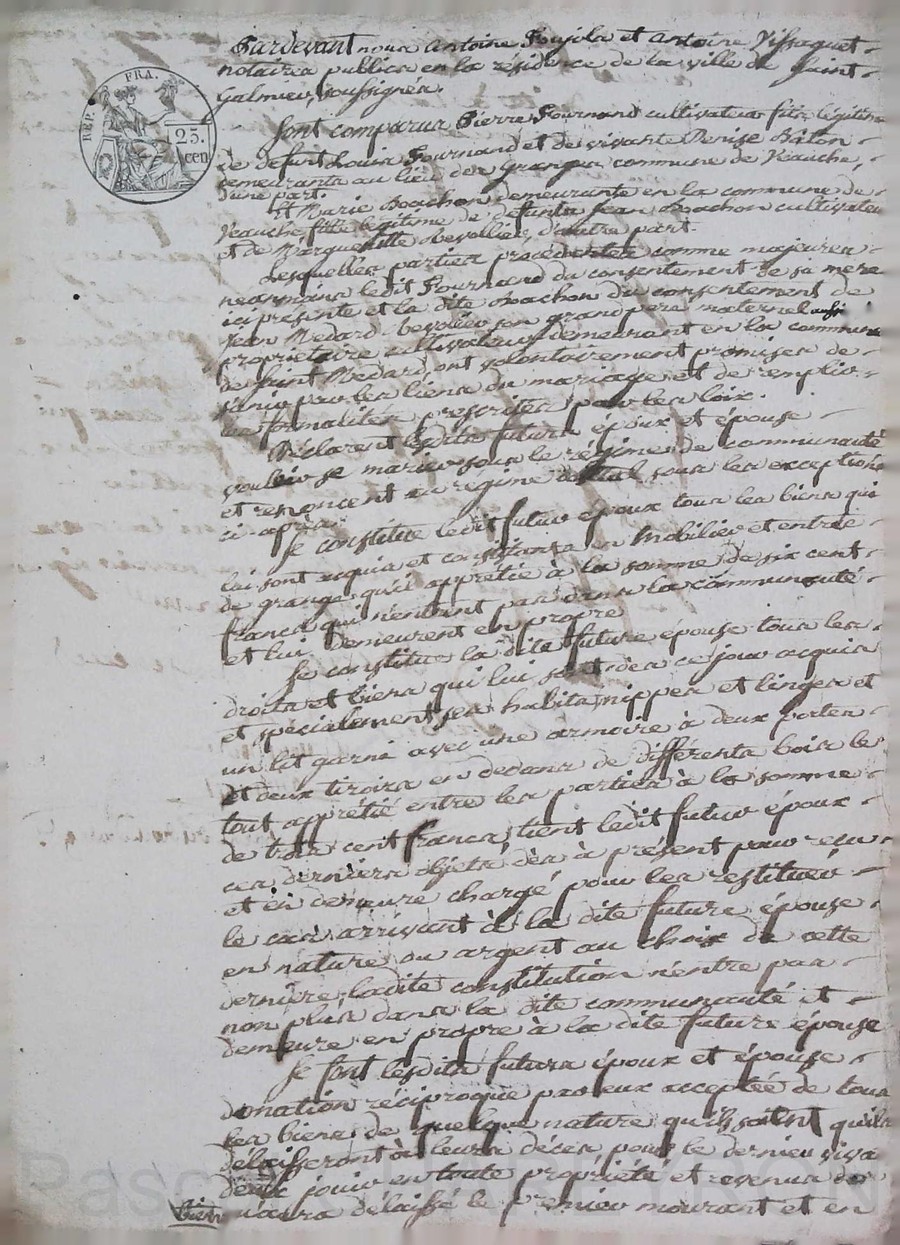 REP. FRA.
25.
cen
Pardevant nous Antoine Poujola et Antoine Vissaguet
notaires publics en la résidence de la ville de Saint
Galmier, soussignés.
Sont comparus Pierre Fournand cultivateur fils légitime
de defunt Louis Fournand et de vivante Denise Bâton
demeurants au lieu des Granges commune de Veauche,
d'une part.
Et Marie Boachon demeurante en la commune de
Veauche fille légitime de defunts Jean Boachon cultivateur
et de Margueritte Revollier, d'autre part.
Lesquelles parties procédentes comme majeures
neanmoins ledit Fournand du consentement de sa mere
ici présente et la dite Boachon du consentement de
Jean Medard Revollier son grand pere maternel aussi
propriétaire cultivateur demeurant en la commune
de Saint Medard, ont volontairement promises de
s'unir par les liens du mariage et de remplir
les formalités prescrites par les loix.
Déclarent lesdits futurs époux et épouse
vouloir se marier sous le régime de communauté
et renoncent au regime dotal sous les exceptions
ci après.
Se constitue ledit futur époux tous les biens qui
lui sont acquis et consistants en Mobilier et entrée
de grange qu'il apprétie à la somme de six cent
francs qui n'entrent pas dans la communauté
et lui demeurent en propre
Se constitue la dite future épouse tous les
droits et biens qui lui sont dès ce jour acquis
et spécialement ses habits, nippes et linges et
un lit garni avec une armoire à deux portes
et deux tiroirs en dedans de différents bois le
tout apprétié entre les parties à la somme
de trois cent francs, tient ledit futur époux
ces derniers objets dès à présent pour reçu
et en demeure chargé pour les restituer
le cas arrivant à la dite future épouse
en nature ou argent au choix de cette
dernière, ladite constitution n'entre pas
non plus dans la dite communauté et
demeure en propre à la dite future épouse
Se font lesdits futurs époux et épouse
donation réciproque par eux acceptée de tous
les biens de quelque nature qu'ils soient qu'ils
délaisseront à leurs décès, pour le dernier viva
d'eux jouir en toute propriété et revenus des
biens
qu'aura délaissé le premier mourant et en